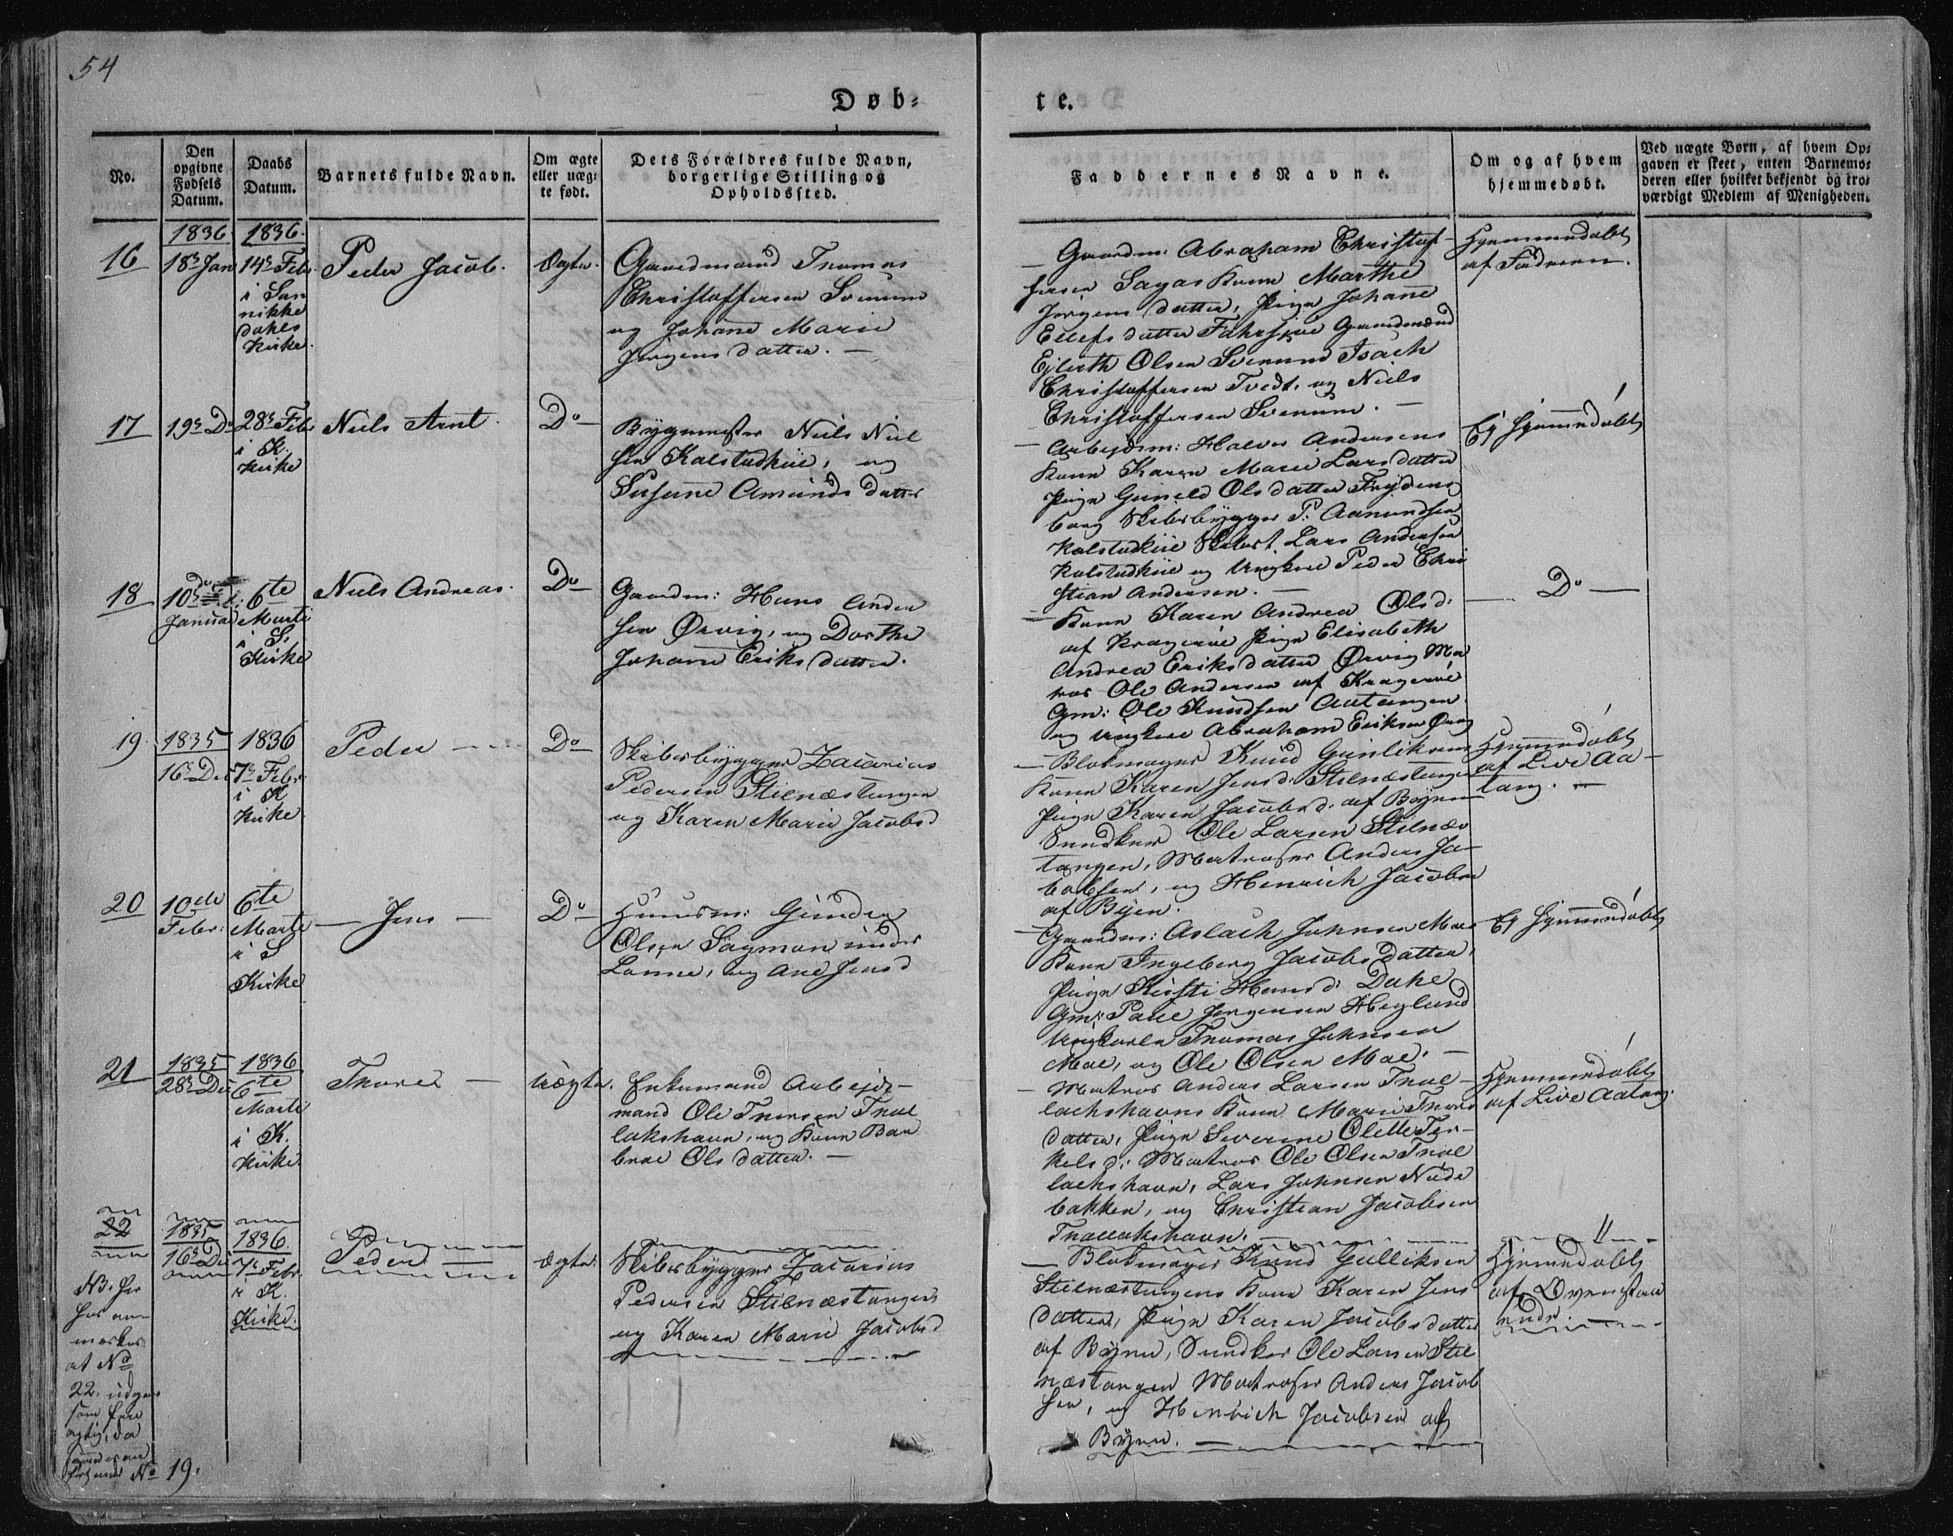 54
Døb-
te.
No.
Den opgivne Fødsels Datum.
Daabs Datum.
Barnets fulde Navn.
Om ægte eller uægte født.
Dets Forældres fulde Navn, borgerlige Stilling og Opholdssted.
Faddernes Navne.
Om og af hvem hjemmedøbt.
Ved uægte Børn, af hvem Opgaven er skeet, enten Barnemoderen eller hvilket bekjendt og troværdigt Medlem af Menigheden.
1836 1836.
16
18de Jan
14de Febr.
i San
nikke
dahls
Kirke.
Peder Jacob.
Ægte.
Gaardmand Thomas
Christoffersen
og Johane Marie
Jørgensdatter. —
— Gaardm: Abraham Christof-
fersen Kone Marthe
Jørgensdatter, Pige Johane
Ellefsdatter Gaardmænd
Ejlerth Olsen Isach
Christoffersen Tvedt, og Niels
Christoffersen —
Hjemmedøbt
af Faderen.
17
19de Do
28de Febr
i K.
Kirke
Niels Arnt.
Do
Bygmester Niels Niel
sen Kalstadkiil, og
Susane Amundsdatter
— Arbejdsm: Halvor Andersens
Kone Karen Marie Larsdatter
Pige Guneld Olsdatter Frydens
borg Skibsbygger P: Aamundsen
Kalstadkiil Lars Andersen
Kalstadkiil og Ungkarl Peder Chri
stian Andersen. —
Ej Hjemmedøbt
18
10de
Januar
6te
Marti
i S.
Kirke
Niels Andreas.
Do
Gaardm: Hans Ander
sen Ørvig, og Dorthe
Johane Eriksdatter.
— Kone Karen Andrea Olsd:
af Kragerøe Pige Elisabeth
Andrea Eriksdatter Ørvig Ma
tros Ole Andersen af Kragerøe
Gm: Ole Knudsen
og Ungkarl Abraham Eriksen Ørvig
— Do —
19.
1835
16de De
1836
7de Febr.
i K
Kirke.
Peder —
Do
Skibsbygger Zacarias
Pedersen Stilnæstangen
og Karen Marie Jacobsd
— Blokmager Knud Gunliksens
Kone Karen Jensd: Stilnæstangen
Pige Karen Jacobsd. af Byen
Ole Larsen Stilnæs
tangen, Matroser Anders Ja-
cobsen, og Henrich Jacobsen
af Byen.
Hjemmedøbt
af Live Aa-
tang. —
20
10de
Febr:
6te
Marti
i S
Kirke
— Jens —
Do
Huusm: Gunder
Olsen under
Lønne, og Ane Jensd
— Gaardm: Aslach Johnsen Moe
Kone Ingeborg Jacobsdatter,
Pige Kirsti Hansd: Dahle
Gm: Povel Jørgensen Heglund
Ungkarle Thomas Johnsen
Moe, og Ole Olsen Moe. —
Ej Hjemmedøbt
21
1835
28de De
1836
6te
Marti
i K.
Kirke.
Thore —
Uægte.
Enkemand Arbejds-
mand Ole Thorsen Thal
lakshavn, og Kone Bar
broe Olsdatter. —
— Matros Anders Larsen Thal-
lachshavns Kone Marie Thors
datter, Pige Severine Olette Ter-
kelsd: Matros Ole Olsen Thal
lachshavn, Lars Johnsen
bakken, og Christian Jacobsen
Thallakshavn. —
Hjemmedøbt
af Live Aatang.
22
1835
16de De
1836
7de Febr.
i K.
Kirke.
Peder —
Ægte.
Skibsbygger Zacarias
Pedersen Stilnæstangen
og Karen Marie Jacobsd
— Blokmager Knud Gulliksen
Stilnæstangens Kone Karen Jens
datter, Pige Karen Jacobsdatter
af Byen, Ole Larsen Stil
næstangen Matroser Anders Jacob
sen, og Henrich Jacobsen af
Byen. —
Hjemmedøbt
af Ovenstaa
ende —
NB: her
an
mærkes
at No
22. udgaar
som
da
No 19.